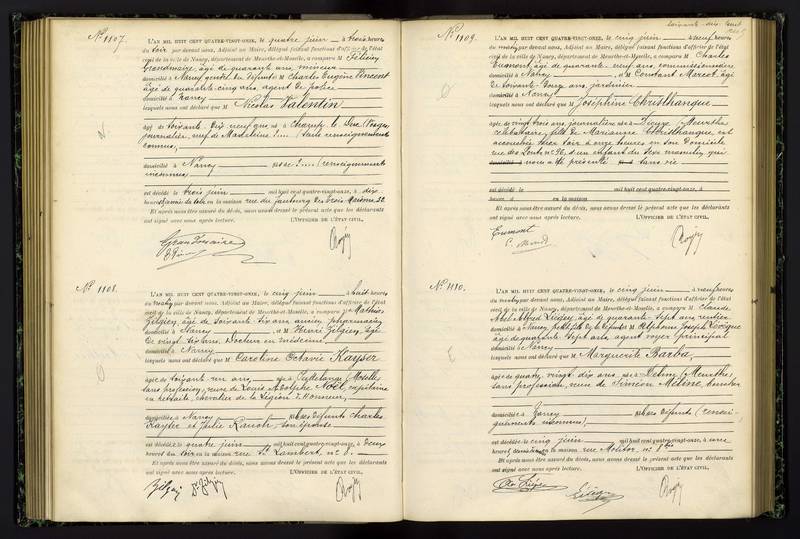 N.º 1107.
L'AN MIL HUIT CENT QUATRE-VINGT-ONZE, le quatre juin à trois heures
du soir par devant nous, Adjoint au Maire, délégué faisant fonctions d'officier de l'état
civil de la ville de Nancy, département de Meurthe-et-Moselle, a comparu M Félicien
Grandmaire, âgé de quarante ans, mineur
domicilié à Nancy gendre du défunt & M Charles Eugène Vincent
âgé de quarante cinq ans, agent de police
domicilié à Nancy
lesquels nous ont déclaré que M Nicolas Valentin
âgé de soixante Dix neuf ans né à Champ le Duc (Vosges
journalier, veuf de Madeleine ?.... (sans renseignements
connus,
domicilié à Nancy fils de ?.... (renseignements
inconnus)
est décédé le trois juin mil huit cent quatre-vingt-onze, à dix
heures du en la maison rue du faubourg des trois Maisons 22
Et après nous être assuré du décès, nous avons dressé le présent acte que les déclarants
ont signé avec nous après lecture. L'OFFICIER DE L'ÉTAT CIVIL,
N.º 1108.
L'AN MIL HUIT CENT QUATRE-VINGT-ONZE, le cinq juin à huit heures
du matin par devant nous, Adjoint au Maire, délégué faisant fonctions d'officier de l'état
civil de la ville de Nancy, département de Meurthe-et-Moselle, a comparu M Mathias
âgé de soixante six ans ancien pharmacien
domicilié à Nancy et M Henri âgé
de vingt six ans, Docteur en médecine
domicilié à Nancy
lesquels nous ont déclaré que M Caroline Octavie Kayser
âgée de soixante un ans née à Hettange (Moselle)
sans profession, veuve de Louis Adolphe Noël, capitaine
en retraite, chevalier de la Légion d'Honneur,
domiciliée à Nancy fille des défunts Charles
Kayser et Julie son épouse
est décédée le quatre juin mil huit cent quatre-vingt-onze, à deux
heures du soir en la maison rue St Lambert, nº 8.
Et après nous être assuré du décès, nous avons dressé le présent acte que les déclarants
ont signé avec nous après lecture. L'OFFICIER DE L'ÉTAT CIVIL,
N.º 1109.
L'AN MIL HUIT CENT QUATRE-VINGT-ONZE, le cinq juin à neuf heures
du matin par devant nous, Adjoint au Maire, délégué faisant fonctions d'officier de l'état
civil de la ville de Nancy, département de Meurthe-et-Moselle, a comparu M Charles
Eumont, âgé de quarante neuf ans, commissionnaire
domicilié à Nancy et M Constant Marcot, âgé
de soixante ans, jardinier
domicilié à Nancy
lesquels nous ont déclaré que M Joséphine Christhangue
âgée de vingt trois ans, journalière née à Dieuze (Meurthe)
célibataire, fille de Marianne Christhangue, est
accouchée hier soir à onze heures en son domicile
rue des Ponts nº 96, d'un enfant du sexe masculin qui
nous a été présenté sans vie
est décédé le mil huit cent quatre-vingt-onze, à
heure d en la maison
Et après nous être assuré du décès, nous avons dressé le présent acte que les déclarants
ont signé avec nous après lecture. L'OFFICIER DE L'ÉTAT CIVIL,
Eumont
N.º 1110.
L'AN MIL HUIT CENT QUATRE-VINGT-ONZE, le cinq juin à neuf heures
du matin par devant nous, Adjoint au Maire, délégué faisant fonctions d'officier de l'état
civil de la ville de Nancy, département de Meurthe-et-Moselle, a comparu M Claude
Abel Alfred âgé de quarante sept ans, rentier
domicilié à Nancy, petit fils de la défunte & M Alphonse Joseph
âgé de quarante sept ans, agent voyer principal
domicilié à Nancy
lesquels nous ont déclaré que M Marguerite Barba,
âgée de quatre vingt dix ans née à (Meurthe)
sans profession, veuve de Siméon Méline,
domiciliée à Nancy fille des défunts (rensei-
gnements inconnus)
est décédée le cinq juin mil huit cent quatre-vingt-onze, à une
heure du matin en la maison rue Molitor, nº 8
Et après nous être assuré du décès, nous avons dressé le présent acte que les déclarants
ont signé avec nous après lecture. L'OFFICIER DE L'ÉTAT CIVIL,